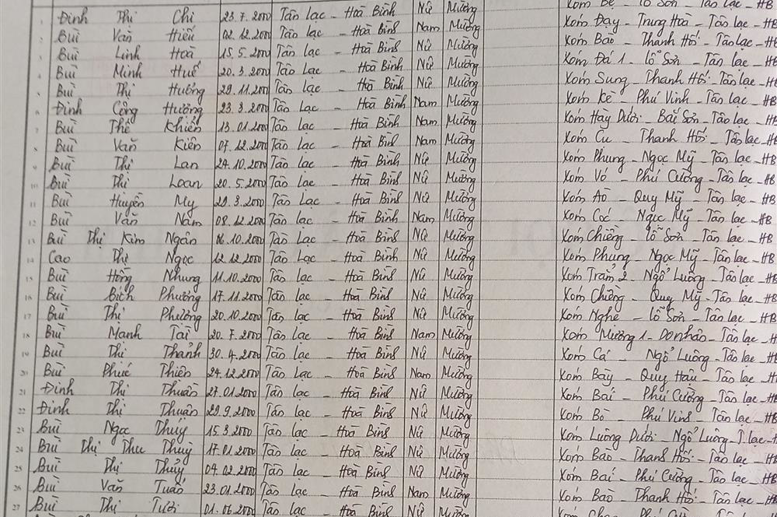 Đinh Thị Chi 23.7.2000 Tân Lạc - Hoà Bình Nữ Mường Xóm Bẹ - Lỗ Sơn - Tân Lạc - HB
2 Bùi Văn Hiếu 02.12.2000 Tân Lạc - Hoà Bình Nam Mường Xóm Đạy - Trung Hoà - Tân Lạc - HB
3 Bùi Linh Hoà 15.5.2000 Tân Lạc - Hoà Bình Nữ Mường Xóm Bao - Thanh Hối - Tân lạc - HB
4 Bùi Minh Huế 20.3.2000 Tân Lạc - Hoà Bình Nữ Mường Xóm Đá 1 - Lỗ Sơn - Tân Lạc - HB
5 Bùi Thị Hường 29.11.2000 Tân Lạc - Hoà Bình Nữ Mường Xóm Sung - Thanh Hối - Tân Lạc - HB
6 Đinh Công Hưởng 23.3.2000 Tân Lạc - Hoà Bình Nam Mường Xóm Kè - Phú Vinh - Tân Lạc - HB
7 Bùi Thế Khiển 13.01.2000 Tân Lạc - Hoà Bình Nam Mường Xóm Hày Dưới - Bắc Sơn - Tân Lạc - HB
8 Bùi Văn Kiên 07.12.2000 Tân Lạc - Hoà Bình Nam Mường Xóm Cu - Thanh Hối - Tân lạc - HB
9 Bùi Thị Lan 24.10.2000 Tân Lạc - Hoà Bình Nữ Mường Xóm Phung - Ngọc Mỹ - Tân lạc - HB
10 Bùi Thị Loan 20.5.2000 Tân Lạc - Hoà Bình Nữ Mường Xóm Vó - Phú Cường - Tân Lạc - HB
11 Bùi Huyền My 29.3.2000 Tân Lạc - Hoà Bình Nữ Mường Xóm Áo - Quy Mỹ - Tân lạc - HB
12 Bùi Văn Nam 08.12.2000 Tân Lạc - Hoà Bình Nam Mường Xóm Cóc - Ngọc Mỹ - Tân Lạc - HB
13 Bùi Thị Kim Ngân 06.10.2000 Tân lạc - Hoà Bình Nữ Mường Xóm Chiềng - Lỗ Sơn - Tân lạc - HB
14 Cao Thị Ngọc 12.12.2000 Tân Lạc - Hoà Bình Nữ Mường Xóm Phung - Ngọc Mỹ - Tân lạc - HB
15 Bùi Hồng Nhung 11.10.2000 Tân lạc - Hoà Bình Nữ Mường Xóm Trẳm 2 - Ngổ Luông - Tân lạc - HB
16 Bùi Bích Phượng 17.11.2000 Tân lạc - Hoà Bình Nữ Mường Xóm Chiềng - Quy Mỹ - Tân lạc - HB
17 Bùi Thị Phượng 20.10.2000 Tân lạc - Hoà Bình Nữ Mường Xóm Nghẹ - Lỗ Sơn - Tân lạc - HB
18 Bùi Mạnh Tài 20.7.2000 Tân lạc - Hoà Bình Nam Mường Xóm Mường 1 - Do nhân - Tân lạc - HB
19 Bùi Thị Thành 30.4.2000 Tân lạc - Hoà Bình Nữ Mường Xóm Cá - Ngổ Luông - Tân lạc - HB
20 Bùi Phúc Thiên 24.12.2000 Tân lạc - Hoà Bình Nam Mường Xóm Bậy - Quy Hậu - Tân lạc - HB
21 Đinh Thị Thuần 27.01.2000 Tân lạc - Hoà Bình Nữ Mường Xóm Bái - Phú Cường - Tân lạc - HB
22 Đinh Thị Thuận 29.9.2000 Tân lạc - Hoà Bình Nữ Mường Xóm Bò - Phú Vinh - Tân lạc - HB
23 Bùi Ngọc Thúy 15.3.2000 Tân lạc - Hoà Bình Nữ Mường Xóm Luông Dưới - Ngổ Luông - T.lạc - H
24 Bùi Thị Thu Thuỳ 17.01.2000 Tân lạc - Hoà Bình Nữ Mường Xóm Bào - Thanh Hối - Tân lạc - HB
25 Bùi Thị Thủy 04.02.2000 Tân lạc - Hoà Bình Nữ Mường Xóm Bái - Phú Cường - Tân lạc - HB
26 Bùi Văn Tuấn 23.01.2000 Tân lạc - Hoà Bình Nam Mường Xóm Bao - Thanh Hối - Tân lạc - HB
27 Bùi Thị Tươi 01.06.2000 Tân lạc - Hoà Bình Nữ Mường